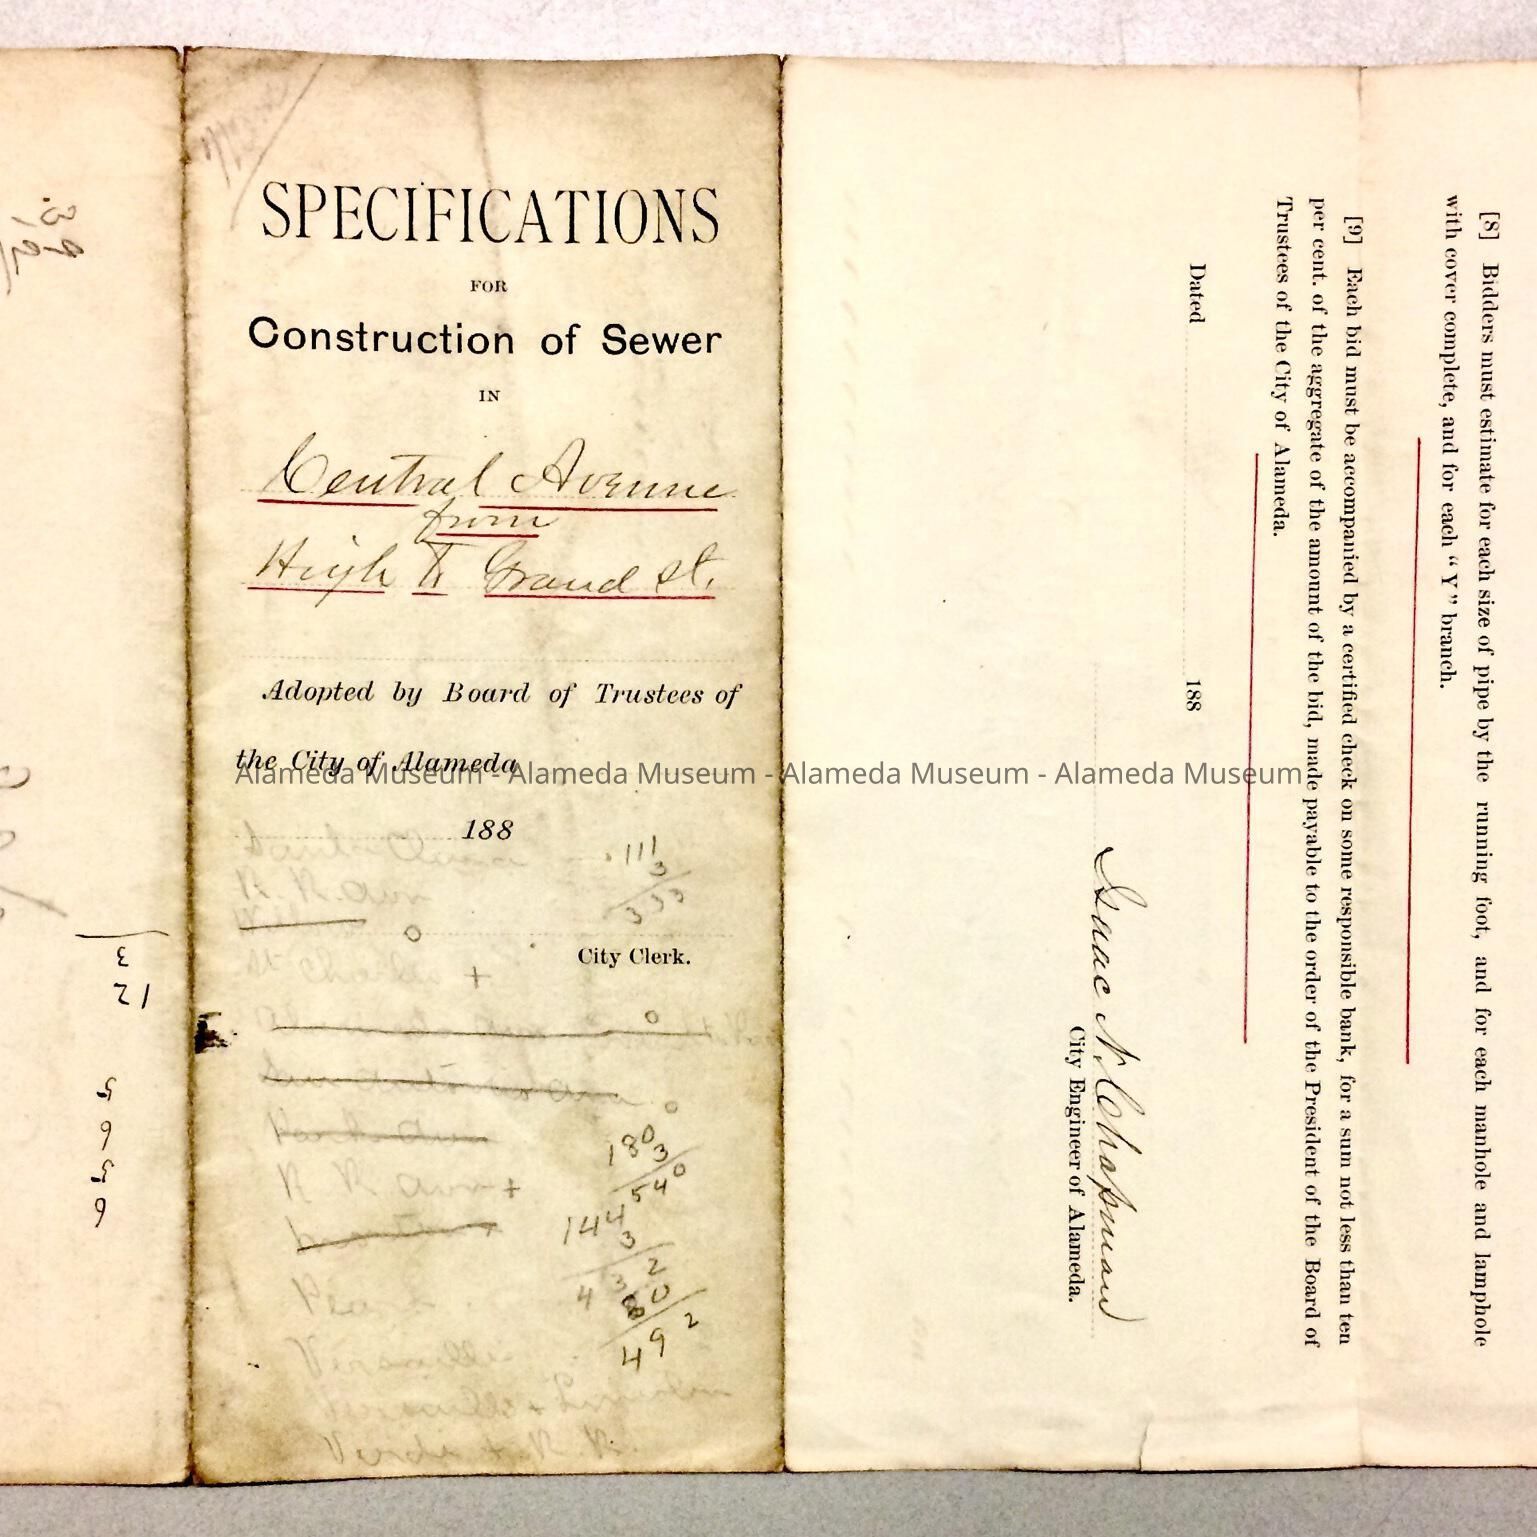 SPECIFICATIONS
FOR
Construction of Sewer
IN
Central Avenue
from
High to Grand st.
Adopted by Board of Trustees of
the City of Alameda
188
City Clerk.
Alameda Museum - Alameda Museum - Alameda Museum - Alameda Museum
111
3
333
R. R. Ave
St Charles +
180
3
540
R R Ave +
144
3
432
60
492
Pearl
Versailles
Versailles + Lincoln
Verdi + R. R.
3
12
5
6
5
6
[8] Bidders must estimate for each size of pipe by the running foot, and for each manhole and lamphole
with cover complete, and for each “Y” branch.
[9] Each bid must be accompanied by a certified check on some responsible bank, for a sum not less than ten
per cent. of the aggregate of the amount of the bid, made payable to the order of the President of the Board of
Trustees of the City of Alameda.
Dated 188
Isaac N. Chapman
City Engineer of Alameda.